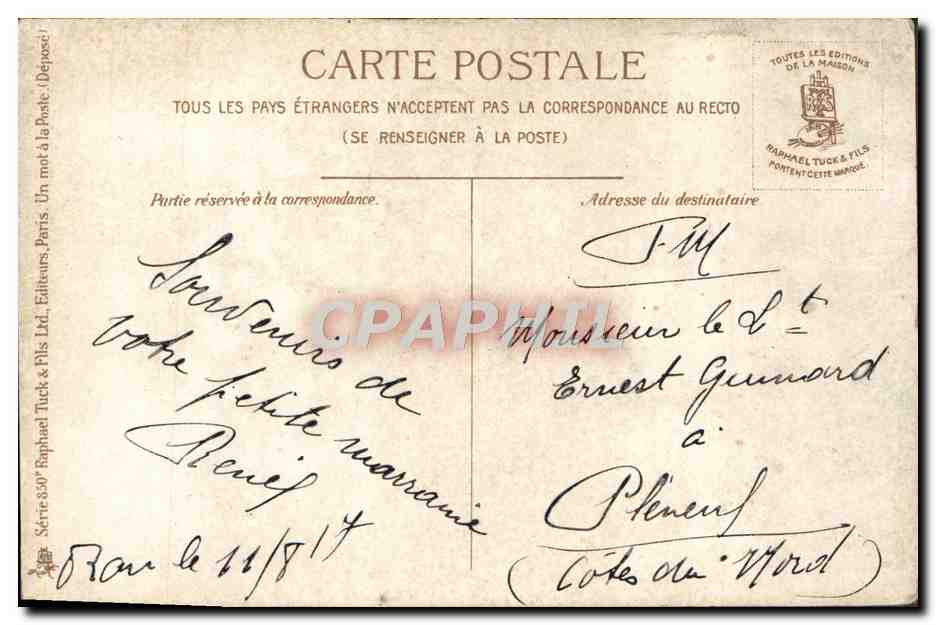 CARTE POSTALE
TOUS LES PAYS ÉTRANGERS N'ACCEPTENT PAS LA CORRESPONDANCE AU RECTO
(SE RENSEIGNER À LA POSTE)
TOUTES LES EDITIONS
DE LA MAISON
RAPHAEL TUCK & FILS
PORTENT CETTE MARQUE.
Partie réservée à la correspondance.
Adresse du destinataire
Souvenirs de
votre petite marraine
Renée
le 11/8 17
F.M
Monsieur le Lt
Ernest
à
Pléneuf
(Côtes du Nord)
Série 850P Raphael Tuck & Fils Ltd., Editeurs, Paris. Un mot à la Poste. (Déposé)
CPAPHIL